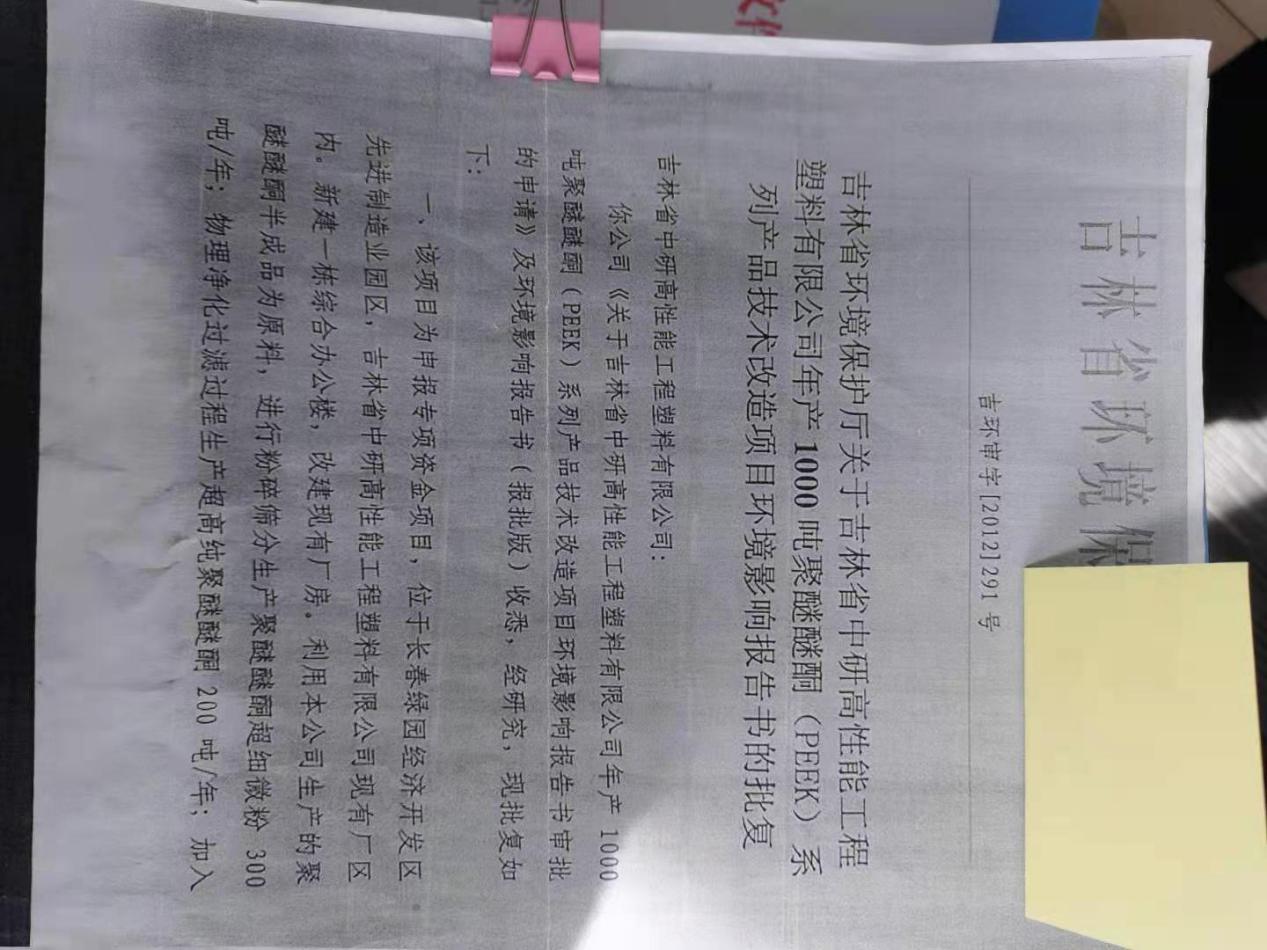 吉林省环境保
吉环审字[2012]291 号
吉林省环境保护厅关于吉林省中研高性能工程
塑料有限公司年产 1000 吨聚醚醚酮（PEEK）系
列产品技术改造项目环境影响报告书的批复
吉林省中研高性能工程塑料有限公司：
你公司《关于吉林省中研高性能工程塑料有限公司年产 1000
吨聚醚醚酮（PEEK）系列产品技术改造项目环境影响报告书审批
的申请》及环境影响报告书（报批版）收悉，经研究，现批复如
下：
一、该项目为申报专项资金项目，位于长春绿园经济开发区
先进制造业园区，吉林省中研高性能工程塑料有限公司现有厂区
内。新建一栋综合办公楼，改建现有厂房。利用本公司生产的聚
醚醚酮半成品为原料，进行粉碎筛分生产聚醚醚酮超细微粉 300
吨/年；物理净化过滤过程生产超高纯聚醚醚酮 200 吨/年；加入